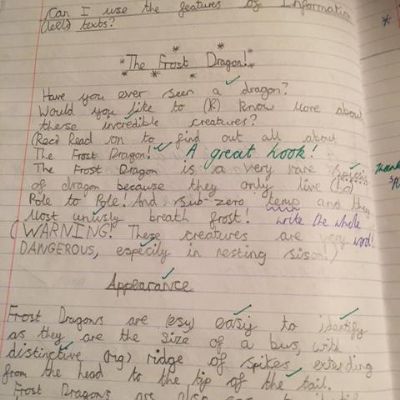 Can I use the features of Information
(tell) texts?
The Frost Dragon!
Have you ever seen a dragon?
Would you like to (k) know more about
these incredible creatures?
(Rec) Read on to find out all about
The Frost Dragon! A great hook!
The Frost Dragon is a very rare
of dragon because they only live
Pole to Pole! And sub-zero temp and they
Most breath frost! write the whole
(WARNING! These creatures are very word!
DANGEROUS, especily in nesting sison!)
Appearance
Frost Dragons are (esy) easy to identify
as they are the size of a bus, with
distinctive (rig) ridge of spikes extending
from the head to the tip of the tail.
Frost Dragons are also easy to identify